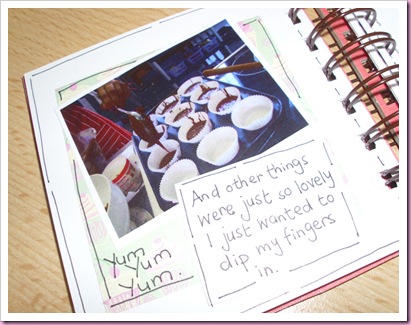 And other things
were just so lovely
I just wanted to
dip my fingers
in.
Yum
Yum
Yum.